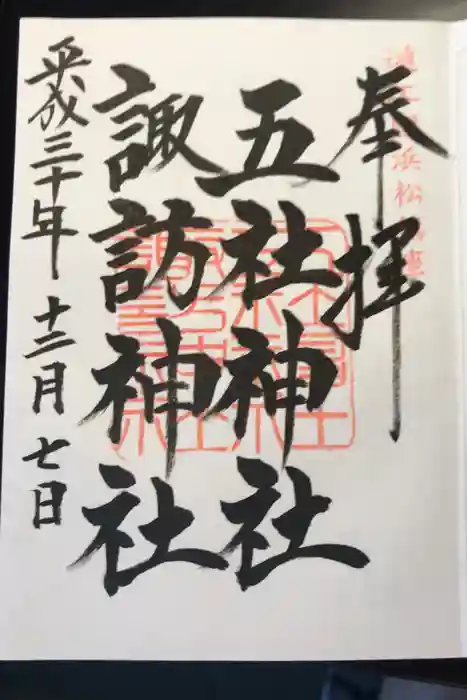 奉拝
五社神社
諏訪神社
平成三十年十二月七日